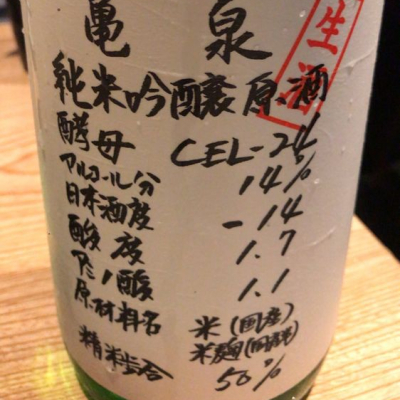 亀泉
生酒
純米吟醸原酒
酵母 CEL-24
アルコール分 14%
日本酒度 -14
酸度 1.7
アミノ酸 1.1
原材料名 米(国産)
米麹(国産米)
精米歩合 50%